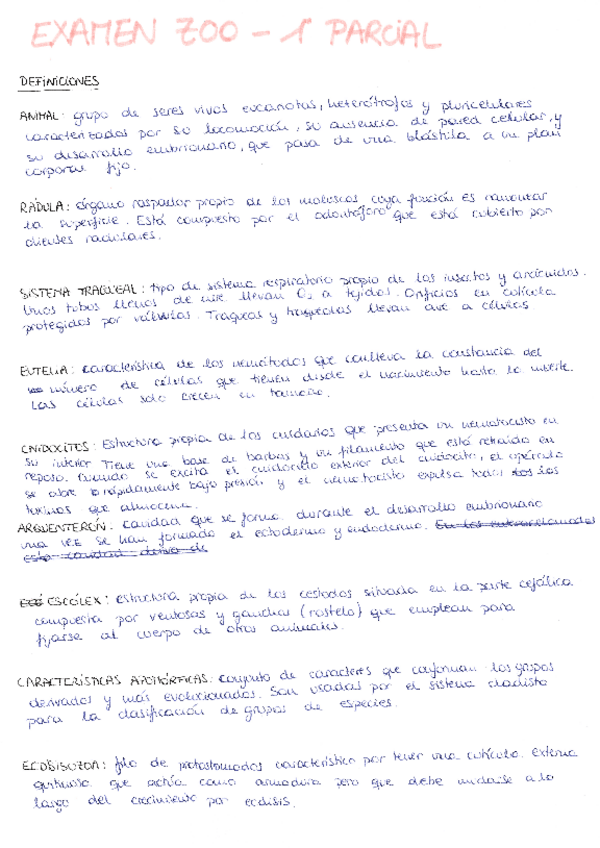 EXAMEN ZOO - 1 PARCIAL
DEFINICIONES
ANIMAL: grupo de seres vivos eucariotas, heterótrofos y pluricelulares
caracterizados por su locomoción, su ausencia de pared celular, y
su desarrollo embrionario, que pasa de una blástula a un plan
corporal fijo.
RÁDULA: órgano raspador propio de los moluscos cuya función es
la superficie. Está compuesto por el odontóforo que está cubierto por
dientes radulares.
SISTEMA TRAQUEAL: tipo de sistema respiratorio propio de los insectos y arácnidos.
Unos tubos llenos de aire llevan O₂ a tejidos. Orificios en cutícula
protegidos por válvulas. Traqueas y traqueolas llevan aire a células
EUTELIA: característica de los nemátodos que conlleva la constancia del
número de células que tienen desde el nacimiento hasta la muerte.
Las células solo crecen en tamaño.
CNIDOCITOS: Estructura propia de los cnidarios que presenta un nematocisto en
su interior. Tiene una base de barbas y un filamento que está retraído en
reposo. Cuando se excita el cnidocilio exterior del cnidocito, el opérculo
se abre rápidamente bajo presión y el nematocisto expulsa todas las
toxinas que almacena.
ARQUENTERÓN: cavidad que se forma durante el desarrollo embrionario
una vez se han formado el ectodermo y endodermo. En los
esta cavidad deriva de
ESCÓLEX: estructura propia de los cestodos situada en la parte cefálica
compuesta por ventosas y ganchos (rostelo) que emplean para
fijarse al cuerpo de otros animales.
CARACTERÍSTICAS APOMÓRFICAS: conjunto de caracteres que conforman los grupos
derivados y más evolucionados. Son usadas por el sistema cladista
para la clasificación de grupos de especies.
filo de protostomados característico por tener una cutícula externa
que actúa como armadura pero que debe mudarse a lo
largo del crecimiento por ecdisis.